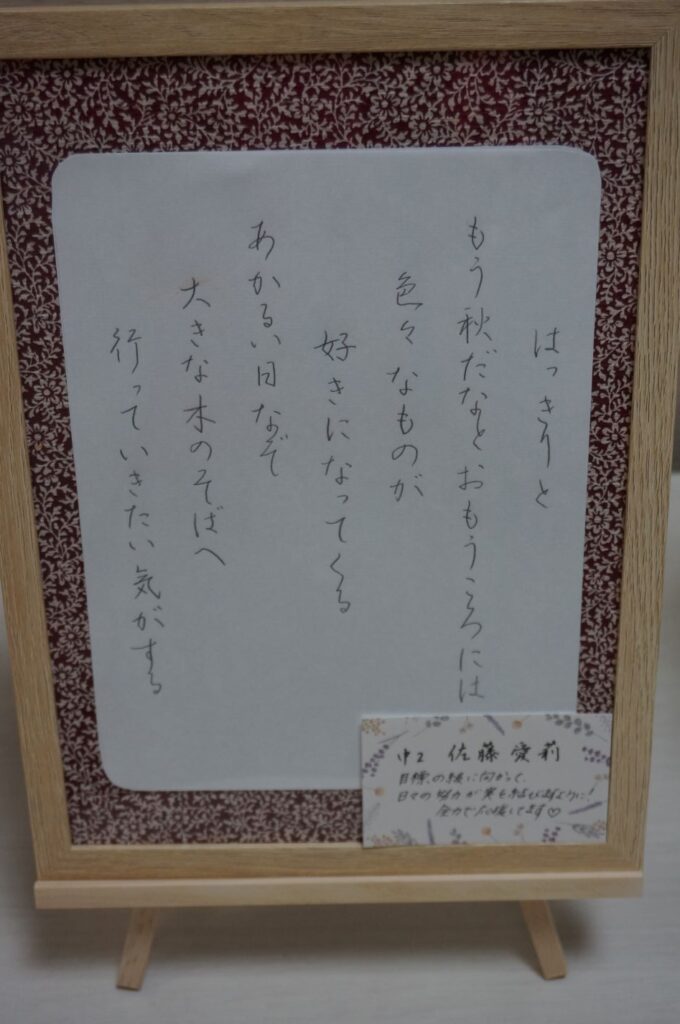 はっきりと
もう秋だなとおもうころには
色々なものが
好きになってくる
あかるい日なぞ
大きな木のそばへ
行っていきたい気がする
中2 佐藤愛莉
目標の級に向かって、
日々の努力が実を結びますように！
全力で応援してます♡